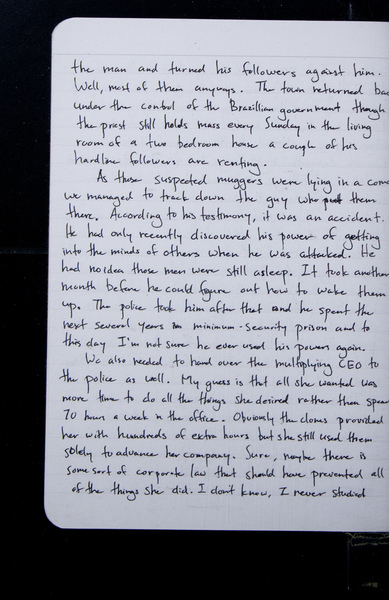 the man and turned his followers against him.
Well, most of them anyways. The town returned bac
under the control of the Brazillian government though
the priest still holds mass every Sunday in the living
room of a two bedroom house a cough of his
hardline followers are renting.
As those suspected muggers were lying in a coma
we managed to track down the guy who put them
there. According to his testimony, it was an accident.
He had only recently discovered his power of getting
into the minds of others when he was attacked. He
had no idea those men were still asleep. It took another
month before he could figure out how to wake them
up. The police took him after that and he spent the
next several years in minimum-security prison and to
this day I'm not sure he ever used his powers again.
We also needed to hand over the multiplying CEO to
the police as well. My guess is that all she wanted was
more time to do all the things she desired rather then spear
70 hours a week in the office. Obviously the clones provided
her with hundreds of extra hours but she still used them
solely to advance her company. Sure, maybe there is
some sort of corporate law that should have prevented all
of the things she did. I don't know, I never studied